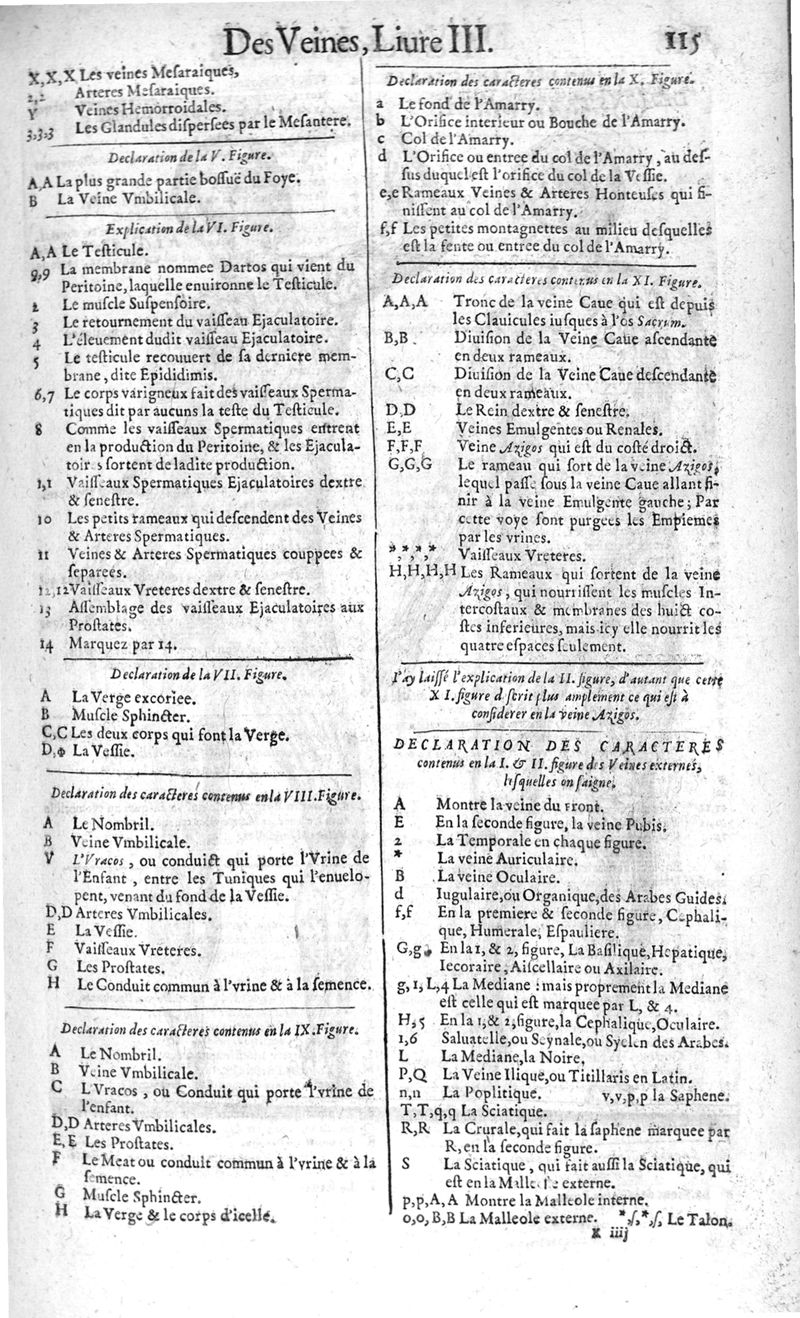 Des Veines, Liure III. 115
X,X,X Les veines Meſaraiques,
2,2 Arteres Meſaraiques.
Y Veines Hemorroidales.
3,3,3 Les Glandules diſperſees par le Meſantere.
Declaration de la V. Figure.
A,A La plus grande partie boſſuë du Foye.
B La Veine Vmbilicale.
Explication de la VI. Figure.
A,A Le Teſticule.
9,9 La membrane nommee Dartos qui vient du
Peritoine, laquelle enuironne le Teſticule.
2 Le muſcle Suſpenſoire.
3 Le retournement du vaiſſeau Ejaculatoire.
4 L'éleuement dudit vaiſſeau Ejaculatoire.
5 Le teſticule recouuert de ſa derniere mem-
brane, dite Epididimis.
6,7 Le corps varigneux fait des vaiſſeaux Sperma-
tiques dit par aucuns la teſte du Teſticule.
8 Comme les vaiſſeaux Spermatiques entrent
en la production du Peritoine, & les Ejacula-
toires ſortent de ladite production.
1,1 Vaiſſeaux Spermatiques Ejaculatoires dextre
& ſeneſtre.
10 Les petits rameaux qui deſcendent des Veines
& Arteres Spermatiques.
11 Veines & Arteres Spermatiques couppees &
ſeparees.
12,12 Vaiſſeaux Vreteres dextre & ſeneſtre.
13 Aſſemblage des vaiſſeaux Ejaculatoires aux
Proſtates.
14 Marquez par 14.
Declaration de la VII. Figure.
A La Verge excoriee.
B Muſcle Sphincter.
C,C Les deux corps qui font la Verge.
D,Φ La Veſſie.
Declaration des caracteres contenus en la VIII. Figure.
A Le Nombril.
B Veine Vmbilicale.
V L'Vracos, ou conduict qui porte l'Vrine de
l'Enfant, entre les Tuniques qui l'enuelo-
pent, venant du fond de la Veſſie.
D,D Arteres Vmbilicales.
E La Veſſie.
F Vaiſſeaux Vreteres.
G Les Proſtates.
H Le Conduit commun à l'vrine & à la ſemence.
Declaration des caracteres contenus en la IX. Figure.
A Le Nombril.
B Veine Vmbilicale.
C L'Vracos, ou Conduit qui porte l'vrine de
l'enfant.
D,D Arteres Vmbilicales.
E,E Les Proſtates.
F Le Meat ou conduit commun à l'vrine & à la
ſemence.
G Muſcle Sphincter.
H La Verge & le corps d'icelle.
Declaration des caracteres contenus en la X. Figure.
a Le fond de l'Amarry.
b L'Orifice interieur ou Bouche de l'Amarry.
c Col de l'Amarry.
d L'Orifice ou entree du col de l'Amarry, au deſ-
ſus duquel eſt l'orifice du col de la Veſſie.
e,e Rameaux Veines & Arteres Honteuſes qui fi-
niſſent au col de l'Amarry.
f,f Les petites montagnettes au milieu deſquelles
eſt la fente ou entree du col de l'Amarry.
Declaration des caracteres contenus en la XI. Figure.
A,A,A Tronc de la veine Caue qui eſt depuis
les Clauicules iuſques à l'os Sacrum.
B,B. Diuiſion de la Veine Caue aſcendante
en deux rameaux.
C,C Diuiſion de la Veine Caue deſcendante
en deux rameaux.
D,D Le Rein dextre & ſeneſtre.
E,E Veines Emulgentes ou Renales.
F,F,F Veine Azigos qui eſt du coſté droict.
G,G,G Le rameau qui ſort de la veine Azigos,
lequel paſſe ſous la veine Caue allant fi-
nir à la veine Emulgente gauche; Par
cette voye ſont purgées les Empiemes
par les vrines.
*,*,*,* Vaiſſeaux Vreteres.
H,H,H,H Les Rameaux qui ſortent de la veine
Azigos, qui nourriſſent les muſcles In-
tercoſtaux & membranes des huict co-
ſtes inferieures, mais icy elle nourrit les
quatre eſpaces ſeulement.
I'ay laiſſé l'explication de la II. figure, d'autant que cette
XI. figure deſcrit plus amplement ce qui eſt à
conſiderer en la veine Azigos.
DECLARATION DES CARACTERES
contenus en la I. & II. figure des Veines externes,
leſquelles on ſaigne.
A Montre la veine du Front.
E En la ſeconde figure, la veine Pubis.
2 La Temporale en chaque figure.
* La veine Auriculaire.
B La veine Oculaire.
d Iugulaire, ou Organique, des Arabes Guides.
f,f En la premiere & ſeconde figure, Cephali-
que, Humerale, Eſpauliere.
G,g. En la 1, & 2, figure, La Baſilique, Hepatique,
Iecoraire, Aiſcellaire ou Axilaire.
g,1,L,4 La Mediane: mais proprement la Mediane
eſt celle qui eſt marquee par L, & 4.
H,5 En la 1, & 2, figure, la Cephalique, Oculaire.
1,6 Saluatelle, ou Seynale, ou Syelen des Arabes.
L La Mediane, la Noire.
P,Q La Veine Ilique, ou Titillaris en Latin.
n,n La Poplitique. v,v,p,p la Saphene.
T,T,q,q La Sciatique.
R,R La Crurale, qui fait la ſaphene marquee par
R, en la ſeconde figure.
S La Sciatique, qui fait auſſi la Sciatique, qui
eſt en la Malleole externe.
p,p,A,A Montre la Malleole interne.
o,o,B,B La Malleole externe. *,ſ,*,ſ, Le Talon.
K iiij